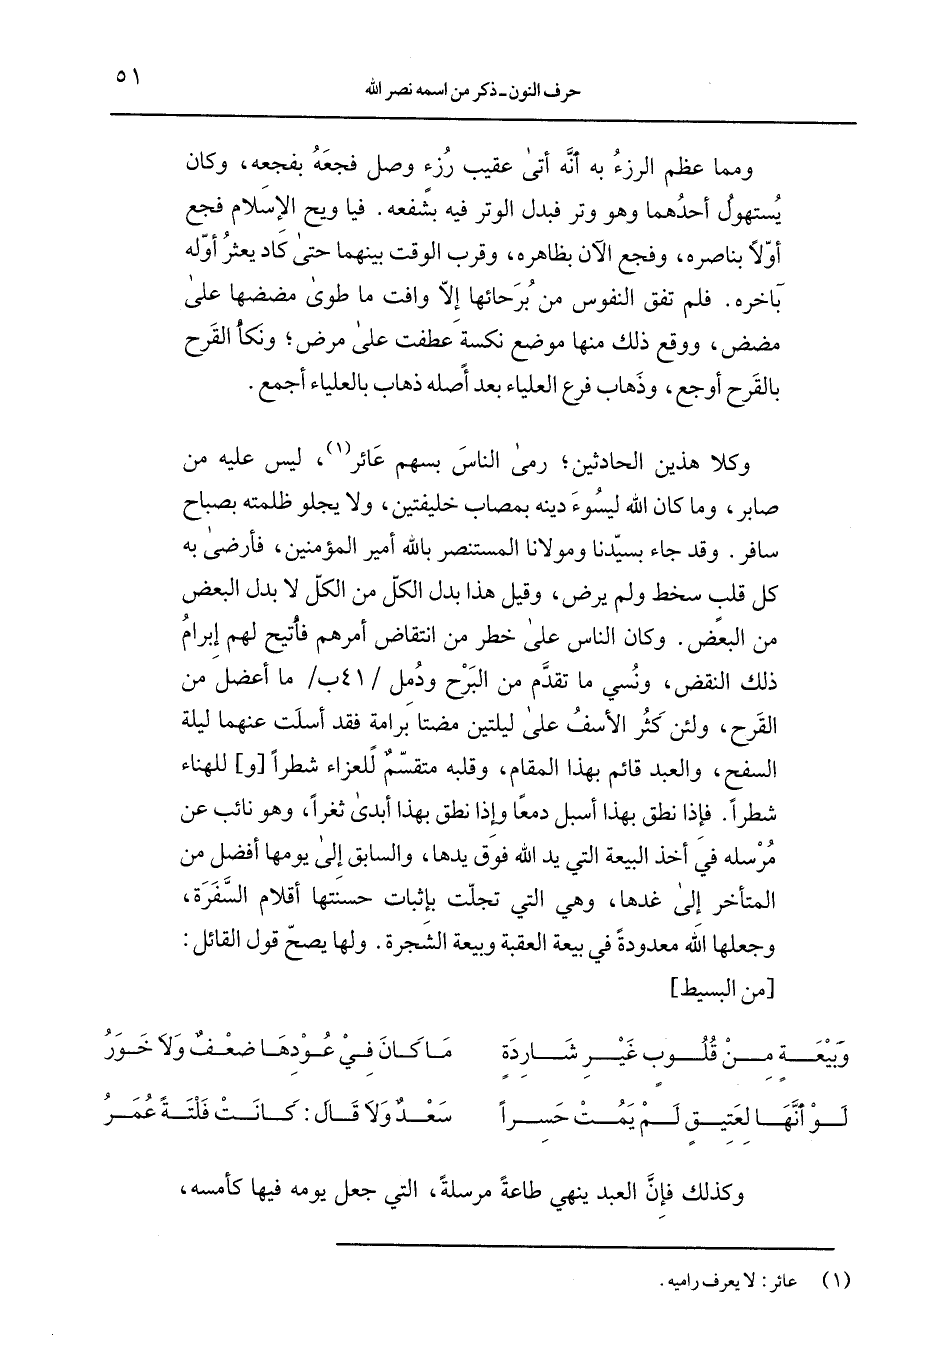 ٥١
حرف النون - ذكر من اسمه نصر الله
ومما عظم الرزءُ به أنَّه أتىٰ عقيب رُزء وصل فجعَهُ بفجعه، وكان
يُستهولُ أحدُهما وهو وتر فبدل الوتر فيه بشفعه. فيا ويح الإسلام فجع
أوّلاً بناصره، وفجع الآن بظاهره، وقرب الوقت بينهما حتىٰ كاد يعثرُ أوّله
بآخره. فلم تفق النفوس من بُرَحائها إلاّ وافت ما طوىٰ مضضها علىٰ
مضض، ووقع ذلك منها موضع نكسة عطفت علىٰ مرض؛ ونكأُ القَرح
بالقَرح أوجع، وذَهاب فرع العلياء بعد أصله ذهاب بالعلياء أجمع.
وكلا هذين الحادثين؛ رمىٰ الناسَ بسهم عَائر(١)، ليس عليه من
صابر، وما كان الله ليسُوءَ دينه بمصاب خليفتين، ولا يجلو ظلمته بصباح
سافر. وقد جاء بسيّدنا ومولانا المستنصر بالله أمير المؤمنين، فأرضىٰ به
كل قلب سخط ولم يرض، وقيل هذا بدل الكلّ من الكلّ لا بدل البعض
من البعض. وكان الناس علىٰ خطر من انتقاض أمرهم فأُتيح لهم إبرامُ
ذلك النقض، ونُسي ما تقدَّم من البَرْح ودُمل /٤١ب/ ما أعضل من
القَرح، ولئن كَثُر الأسفُ علىٰ ليلتين مضتا برامة فقد أسلَت عنهما ليلة
السفح، والعبد قائم بهذا المقام، وقلبه متقسّمٌ للعزاء شطراً [و] للهناء
شطراً. فإذا نطق بهذا أسبل دمعًا وإذا نطق بهذا أبدىٰ ثغراً، وهو نائب عن
مُرْسله في أخذ البيعة التي يد الله فوق يدها، والسابق إلىٰ يومها أفضل من
المتأخر إلىٰ غدها، وهي التي تجلّت بإثبات حسنتها أقلام السَّفَرَة،
وجعلها الله معدودةً في بيعة العقبة وبيعة الشجرة. ولها يصحّ قول القائل:
[من البسيط]
وَبَيْعَةٍ مِنْ قُلُوبٍ غَيْرِ شَارِدَةٍ مَا كَانَ فِيْ عُوْدِهَا ضعْفٌ وَلاَ خَوَرُ
لَوْ أنَّهَا لعَتِيقٍ لَمْ يَمُتْ حَسِراً سَعْدٌ وَلاَ قَالَ: كَانَتْ فَلْتَةً عُمَرُ
وكذلك فإنَّ العبد ينهي طاعةً مرسلةً، التي جعل يومه فيها كأمسه،
(١) عائر: لا يعرف راميه.